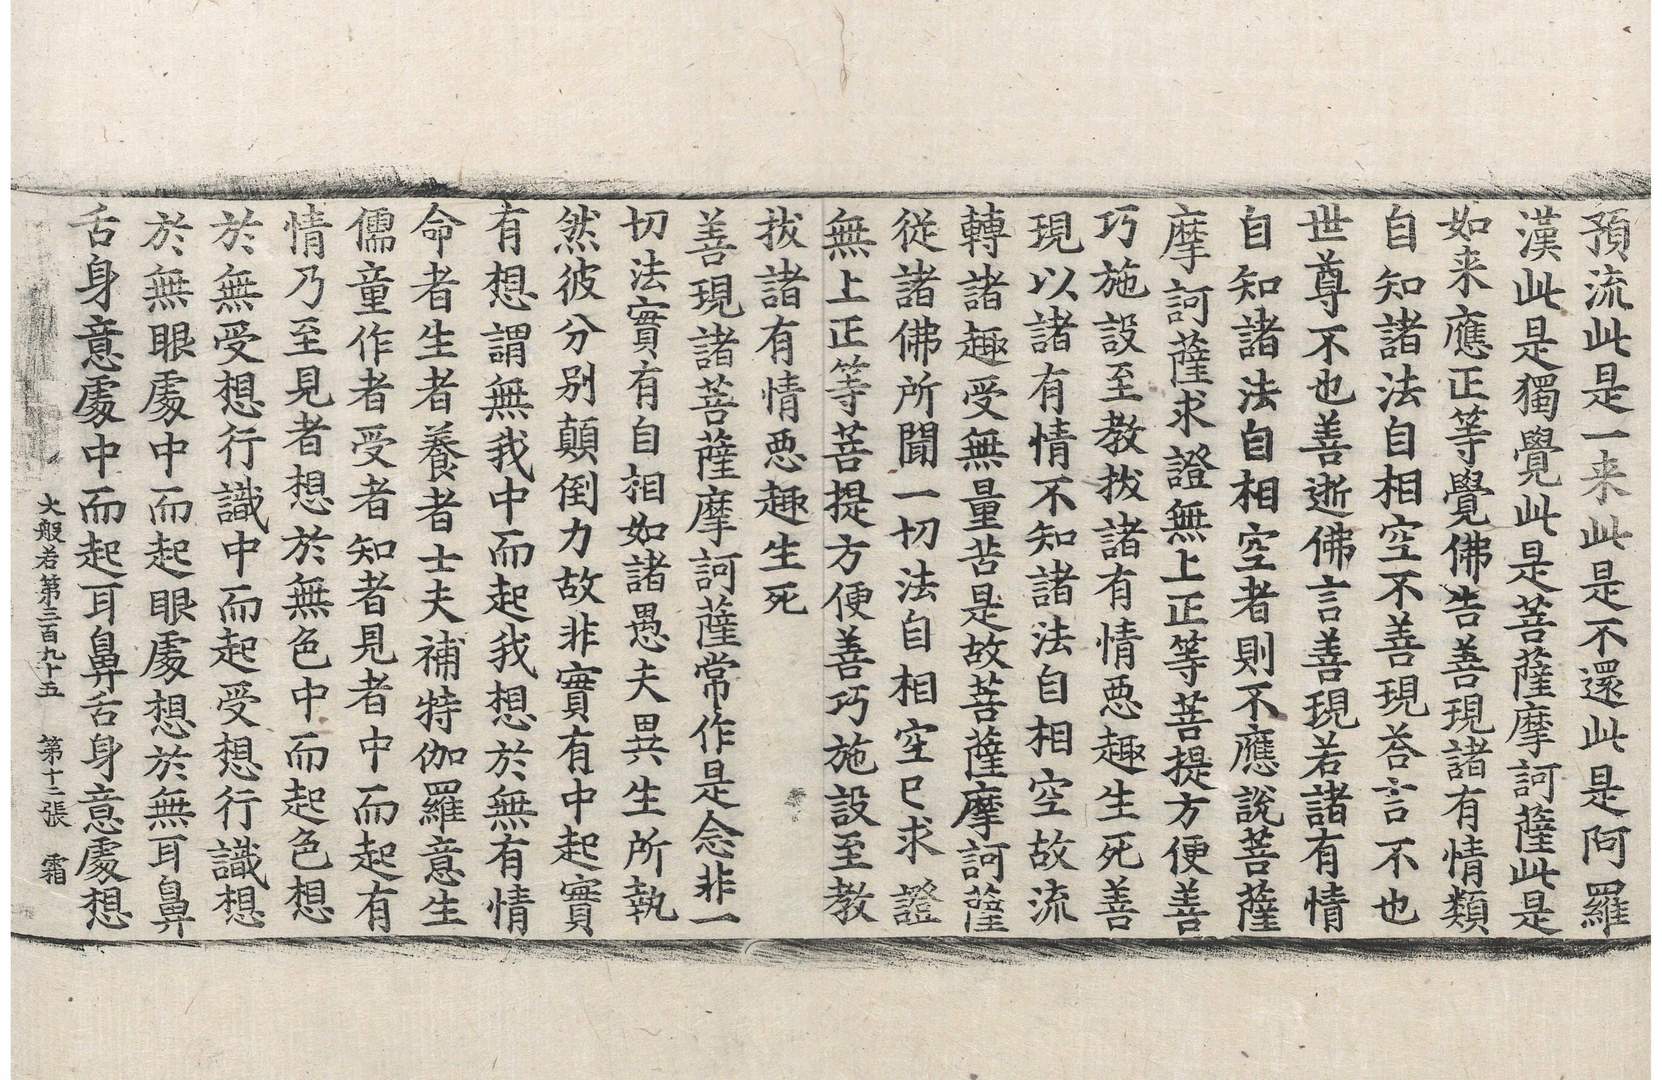 預流此是一来此是不還此是阿羅
漢此是獨覺此是菩薩摩訶薩此是
如来應正等覺佛告善現諸有情類
自知諸法自相空不善現荅言不也
世尊不也善逝佛言善現若諸有情
自知諸法自相空者則不應說菩薩
摩訶薩求證無上正等菩提方便善
巧施設至教拔諸有情惡趣生死善
現以諸有情不知諸法自相空故流
轉諸趣受無量苦是故菩薩摩訶薩
從諸佛所聞一切法自相空已求證
無上正等菩提方便善巧施設至教
拔諸有情惡趣生死
善現諸菩薩摩訶薩常作是念非一
切法實有自相如諸愚夫異生所執
然彼分别顛倒力故非實有中起實
有想謂無我中而起我想於無有情
命者生者養者士夫補特伽羅意生
儒童作者受者知者見者中而起有
情乃至見者想於無色中而起色想
於無受想行識中而起受想行識想
於無眼處中而起眼處想於無耳鼻
舌身意處中而起耳鼻舌身意處想
大般若第三百九十五 第十二張 霜